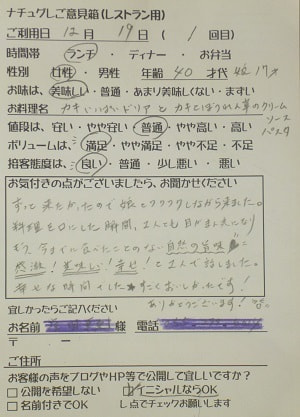 ナチュグレご意見箱(レストラン用)
ご利用日 12月 19日 ( 1 回目)
時間帯 ランチ ・ ディナー ・ お弁当
性別 女性 ・ 男性 年齢 40 才代 娘17才
お味は、美味しい・普通・あまり美味しくない・まずい
お料理名 カキいっぱいドリア と カキとほうれん草のクリーム
ソース
パスタ
値段は、安い・やや安い・普通・やや高い・高い
ボリュームは、満足・やや満足・やや不足・不足
接客態度は、良い・普通・少し悪い・悪い
お気付きの点がございましたら、お聞かせください
ずっと来たかったので娘とワクワクしながら来ました。
料理を口にした瞬間、2人とも目がまん丸になり
もう今まで食べたことのない自然の旨味
感激!美味しい!幸せ!と2人で話しました。
幸せな時間でした すっごくおいしかったです!
ありがとうございます!
宜しかったらご記入ください
お名前 様 電話
〒 -
ご住所
お客様の声をブログやHP等で公開して宜しいですか?
□公開を希望しない イニシャルならOK
□名前付きでOK レ点でチェックお願いします